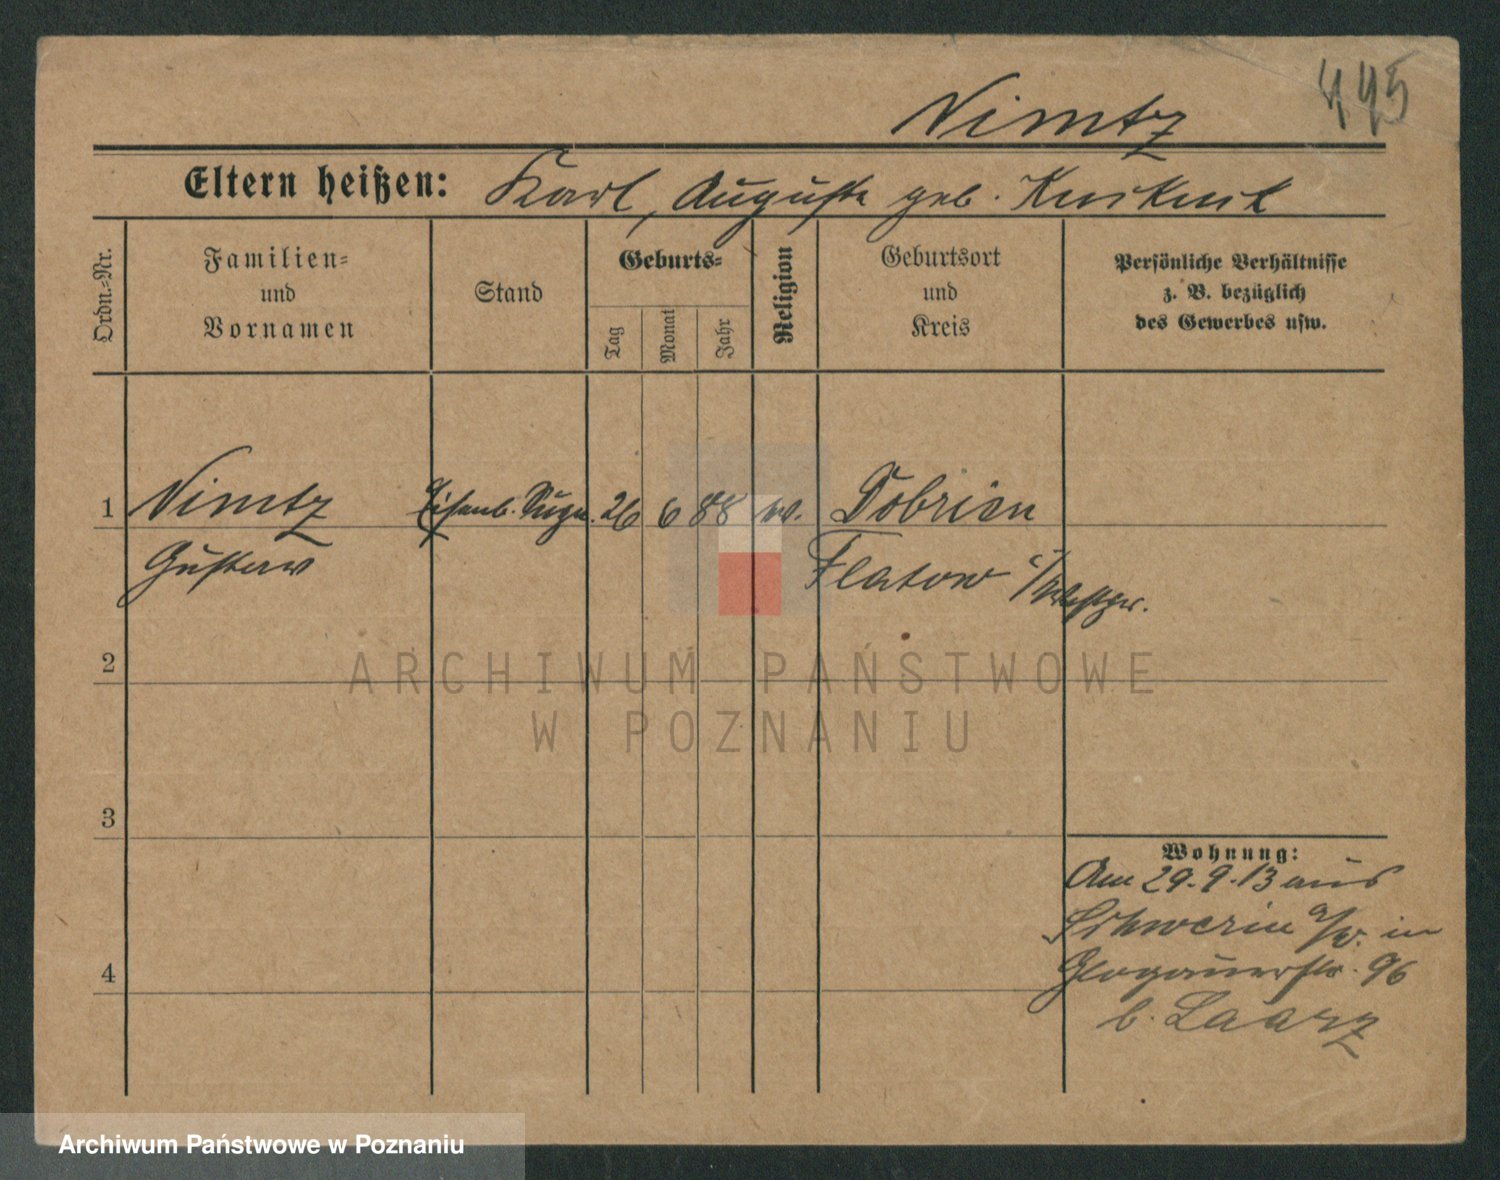 445
Nimtz
Eltern heißen: Karl, Auguste geb.
Ordn.-Nr.
Familien-
und
Vornamen
Stand
Geburts-
Tag
Monat
Jahr
Religion
Geburtsort
und
Kreis
Persönliche Verhältnisse
z. B. bezüglich
des Gewerbes usw.
1 Nimtz Eisenb. 26 6 88 Dobrin
Gustav Flatow i/Westpr.
2
ARCHIWUM PAŃSTWOWE
W POZNANIU
3
Wohnung:
Am 29.9.13 aus
Schwerin a/W. in
4 Glogauerstr. 96
b. Laarz
Archiwum Państwowe w Poznaniu